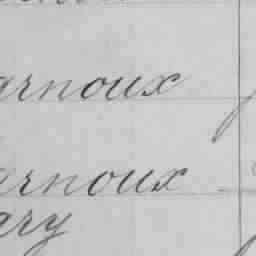 arnoux
arnoux
ary